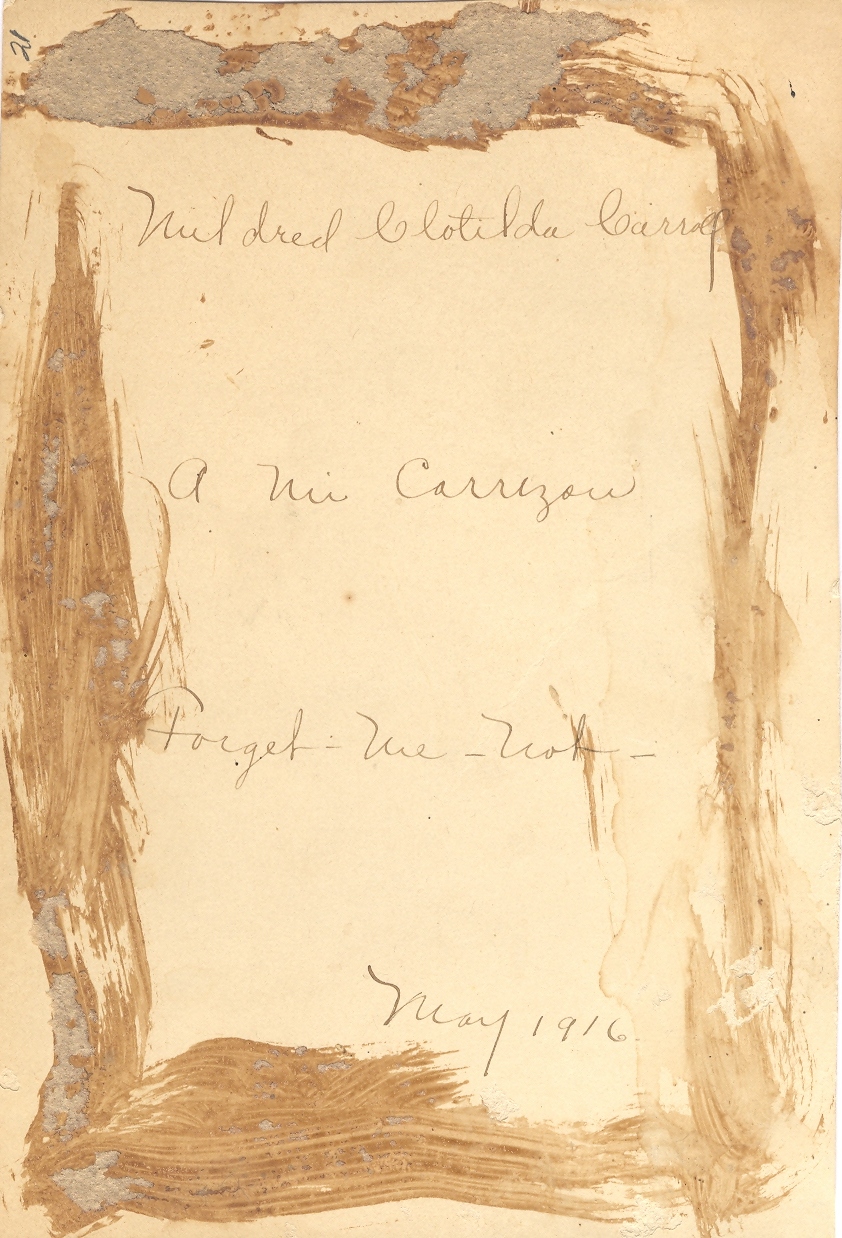 21
Mildred Clotilda Carroll
A Mi Carrizou
Forget-Me-Not-
May 1916